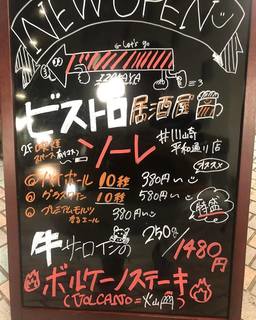 NEW OPEN
Let's go
IZAKAYA
ビストロ居酒屋
ソーレ
#川崎
平和通り店
オススメ
ハイボール 10秒 380円
グラスワイン 10秒 580円
プレミアムモルツ
香るエール 580円
牛サーロインの 250g/1480円
ボルケーノステーキ
(VOLCANO=火山)